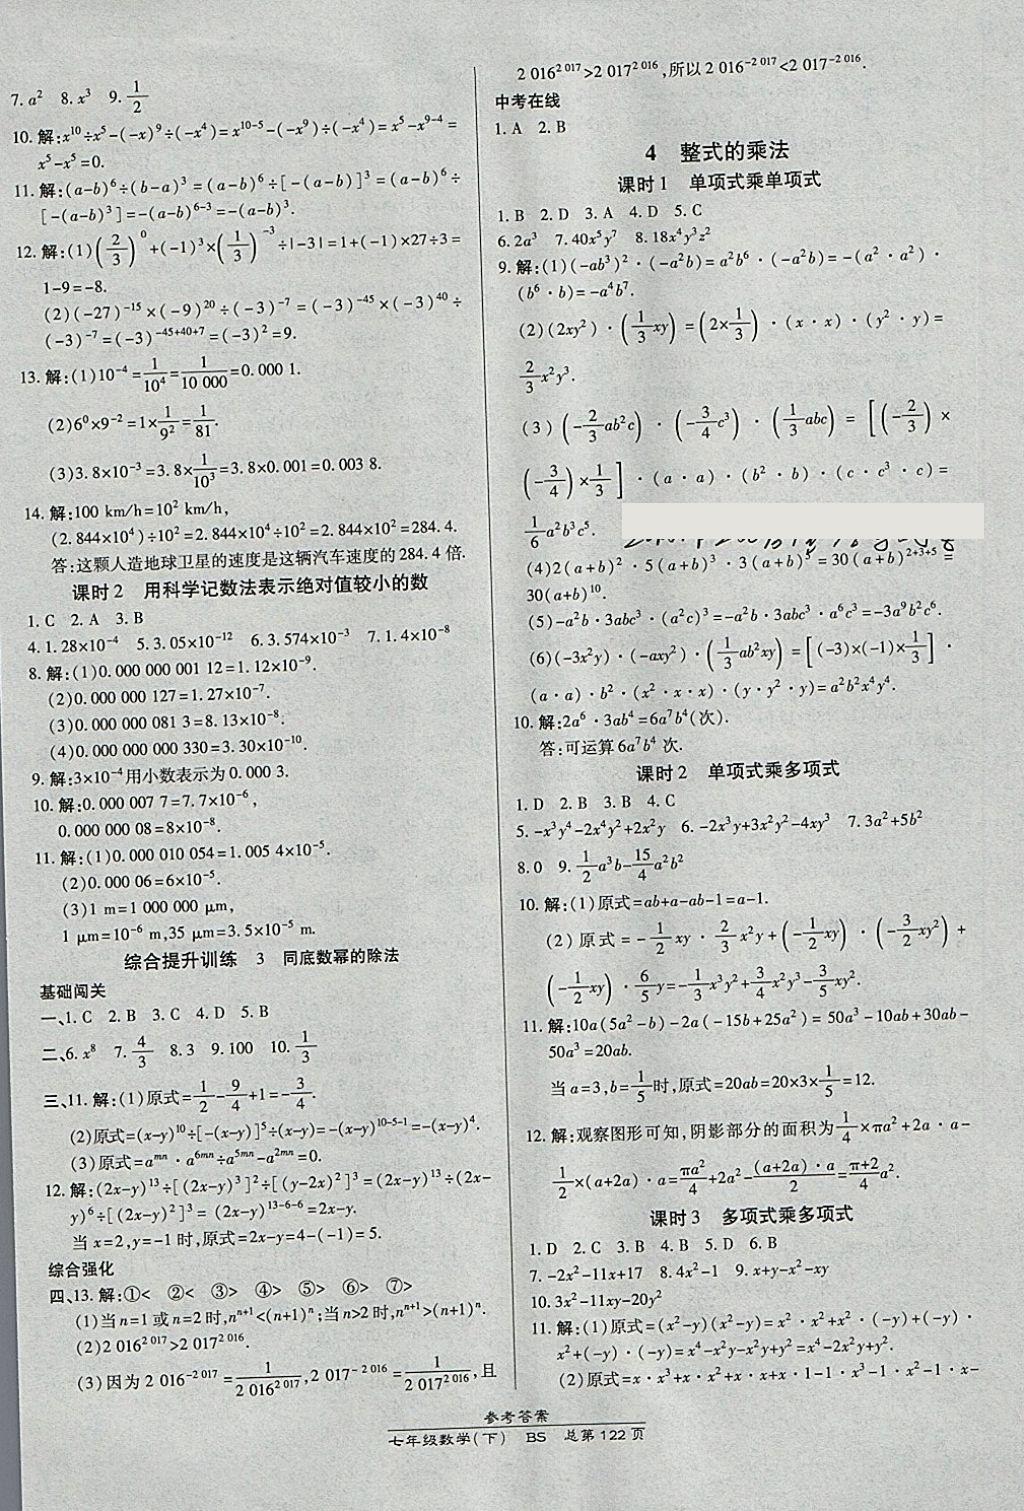 7. a² 8. x³ 9. 1/2
10. 解:x¹⁰÷x⁵-(-x)⁹÷(-x⁴)=x¹⁰⁻⁵-(-x⁹)÷(-x⁴)=x⁵-x⁹⁻⁴=
x⁵-x⁵=0.
11. 解:(a-b)⁶÷(b-a)³=(a-b)⁶÷[-(a-b)]³=(a-b)⁶÷
[-(a-b)³]=-(a-b)⁶⁻³=-(a-b)³.
12. 解:(1)(2/3)⁰+(-1)³×(1/3)⁻³÷|-3|=1+(-1)×27÷3=
1-9=-8.
(2)(-27)⁻¹⁵×(-9)²⁰÷(-3)⁻⁷=(-3)⁻⁴⁵×(-3)⁴⁰÷
(-3)⁻⁷=(-3)⁻⁴⁵⁺⁴⁰⁺⁷=(-3)²=9.
13. 解:(1)10⁻⁴=1/10⁴=1/10 000=0.000 1.
(2)6⁰×9⁻²=1×1/9²=1/81.
(3)3.8×10⁻³=3.8×1/10³=3.8×0.001=0.003 8.
14. 解:100 km/h=10² km/h,
(2.844×10⁴)÷10²=2.844×10⁴÷10²=2.844×10²=284.4.
答:这颗人造地球卫星的速度是这辆汽车速度的284.4倍.
课时2 用科学记数法表示绝对值较小的数
1. C 2. A 3. B
4. 1.28×10⁻⁴ 5. 3.05×10⁻¹² 6. 3.574×10⁻³ 7. 1.4×10⁻⁸
8. 解:(1)0.000 000 001 12=1.12×10⁻⁹.
(2)0.000 000 127=1.27×10⁻⁷.
(3)0.000 000 081 3=8.13×10⁻⁸.
(4)0.000 000 000 330=3.30×10⁻¹⁰.
9. 解:3×10⁻⁴用小数表示为0.000 3.
10. 解:0.000 007 7=7.7×10⁻⁶,
0.000 000 08=8×10⁻⁸.
11. 解:(1)0.000 010 054=1.005 4×10⁻⁵.
(2)0.000 06=6×10⁻⁵.
(3)1 m=1 000 000 μm,
1 μm=10⁻⁶ m,35 μm=3.5×10⁻⁵ m.
综合提升训练 3 同底数幂的除法
基础闯关
一、1. C 2. B 3. C 4. D 5. B
二、6. x⁸ 7. 4/3 8. 3 9. 100 10. 1/3
三、11. 解:(1)原式=1/2-9/4+1=-3/4.
(2)原式=(x-y)¹⁰÷[-(x-y)]⁵÷(x-y)=-(x-y)¹⁰⁻⁵⁻¹=-(x-y)⁴.
(3)原式=aᵐⁿ·a⁶ᵐⁿ÷a⁵ᵐⁿ-a²ᵐⁿ=0.
12. 解:(2x-y)¹³÷[(2x-y)³]²÷[(y-2x)²]³=(2x-y)¹³÷(2x-
y)⁶÷[(2x-y)²]³=(2x-y)¹³⁻⁶⁻⁶=2x-y.
当x=2,y=-1时,原式=2x-y=4-(-1)=5.
综合强化
四、13. 解:①< ②< ③> ④> ⑤> ⑥> ⑦>
(1)当n=1或n=2时,nⁿ⁺¹<(n+1)ⁿ;当n>2时,nⁿ⁺¹>(n+1)ⁿ.
(2)2 016²⁰¹⁷>2 017²⁰¹⁶.
(3)因为2 016⁻²⁰¹⁷=1/2 016²⁰¹⁷,2 017⁻²⁰¹⁶=1/2 017²⁰¹⁶,且
2 016²⁰¹⁷>2 017²⁰¹⁶,所以2 016⁻²⁰¹⁷<2 017⁻²⁰¹⁶.
中考在线
1. A 2. B
4 整式的乘法
课时1 单项式乘单项式
1. B 2. D 3. A 4. D 5. C
6. 2a³ 7. 40x⁵y⁷ 8. 18x⁴y³z²
9. 解:(1)(-ab³)²·(-a²b)=a²b⁶·(-a²b)=-(a²·a²)·
(b⁶·b)=-a⁴b⁷.
(2)(2xy²)·(1/3xy)=(2×1/3)·(x·x)·(y²·y)=
2/3x²y³.
(3)(-2/3ab²c)·(-3/4c³)·(1/3abc)=[(-2/3)×
(-3/4)×1/3]·(a·a)·(b²·b)·(c·c³·c)=
1/6a²b³c⁵.
(4)2(a+b)²·5(a+b)³·3(a+b)⁵=30(a+b)²⁺³⁺⁵=
30(a+b)¹⁰.
(5)-a²b·3abc³·(a²c)³=-a²b·3abc³·a⁶c³=-3a⁹b²c⁶.
(6)(-3x²y)·(-axy²)·(1/3ab²xy)=[(-3)×(-1)×1/3]·
(a·a)·b²·(x²·x·x)·(y·y²·y)=a²b²x⁴y⁴.
10. 解:2a⁶·3ab⁴=6a⁷b⁴(次).
答:可运算6a⁷b⁴次.
课时2 单项式乘多项式
1. D 2. B 3. B 4. C
5. -x³y⁴-2x⁴y²+2x²y 6. -2x³y+3x²y²-4xy³ 7. 3a²+5b²
8. 0 9. 1/2a³b-15/4a²b²
10. 解:(1)原式=ab+a-ab-1=a-1.
(2)原式=-1/2xy·2/3x²y+(-1/2xy)·(-3/2xy²)+
(-1/2xy)·6/5y=-1/3x³y²+3/4x²y³-3/5xy².
11. 解:10a(5a²-b)-2a(-15b+25a²)=50a³-10ab+30ab-
50a³=20ab.
当a=3,b=1/5时,原式=20ab=20×3×1/5=12.
12. 解:观察图形可知,阴影部分的面积为1/4×πa²+2a·a-
1/2×(a+2a)·a=πa²/4+2a²-(a+2a)·a/2=π+2/4a².
课时3 多项式乘多项式
1. D 2. C 3. B 4. B 5. D 6. B
7. -2x²-11x+17 8. 4x²-1 9. x+y-x²-xy
10. 3x²-11xy-20y²
11. 解:(1)原式=(x²-y)(x²-y)=x²·x²+x²·(-y)+(-y)·
x²+(-y)·(-y)=x⁴-x²y-x²y+y²=x⁴-2x²y+y².
(2)原式=x·x³+x·x²+x·x+x·1-1·x³-1·x²-1·x-
参考答案
七年级数学(下) BS 总第122页